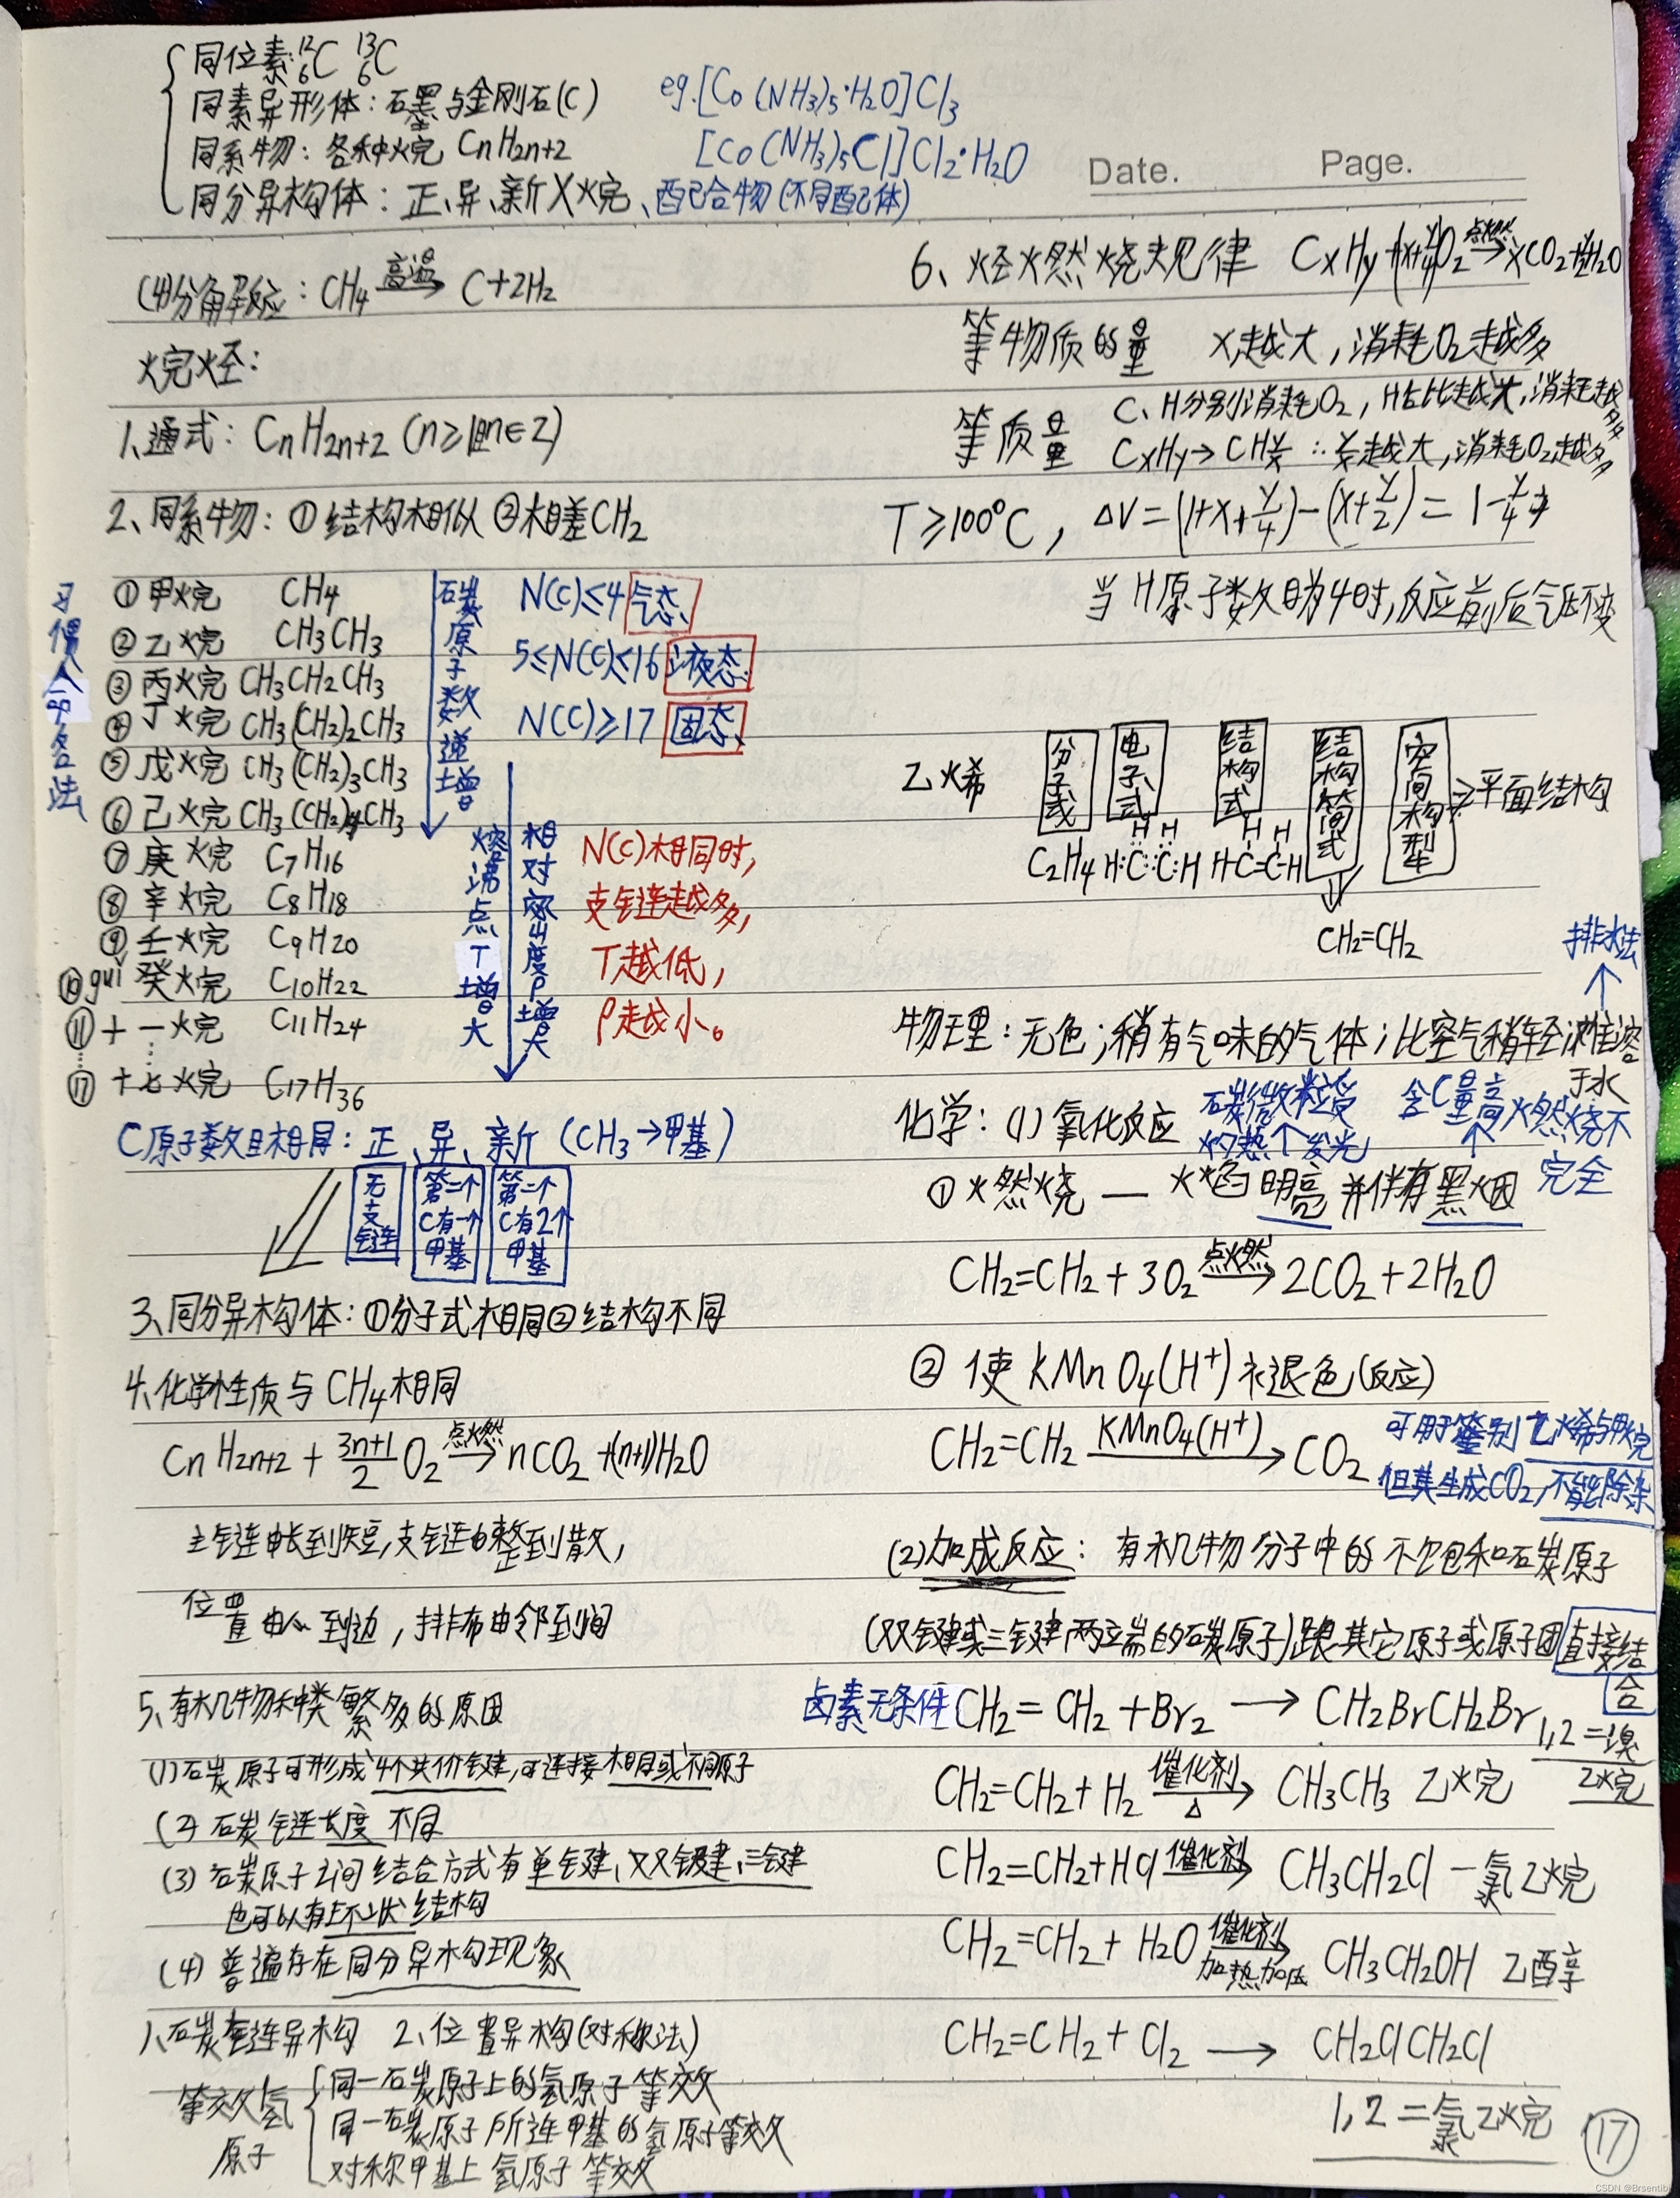 同位素: ¹²₆C ¹³₆C
同素异形体：石墨与金刚石(C)
同系物：各种烷 CnH2n+2
同分异构体：正、异、新X烷、配合物(不同配体)
eg.[Co(NH3)5·H2O]Cl3
[Co(NH3)5Cl]Cl2·H2O
Date. Page.
(4)分解反应：CH4 高温→ C+2H2
烷烃：
1、通式：CnH2n+2 (n≥1且n∈Z)
2、同系物：①结构相似 ②相差CH2
习惯命名法
①甲烷 CH4
②乙烷 CH3CH3
③丙烷 CH3CH2CH3
④丁烷 CH3(CH2)2CH3
⑤戊烷 CH3(CH2)3CH3
⑥己烷 CH3(CH2)4CH3
⑦庚烷 C7H16
⑧辛烷 C8H18
⑨壬烷 C9H20
⑩gui癸烷 C10H22
⑪十一烷 C11H24
⑰十七烷 C17H36
碳原子数递增
熔沸点T增大
相对密度ρ增大
N(C)≤4 气态
5≤N(C)≤16 液态
N(C)≥17 固态
N(C)相同时,
支链越多,
T越低,
ρ越小。
C原子数目相同：正、异、新 (CH3→甲基)
无支链
第二个C有一个甲基
第二个C有2个甲基
3、同分异构体：①分子式相同②结构不同
4、化学性质与CH4相同
CnH2n+2 + 3n+1/2 O2 点燃→ nCO2 +(n+1)H2O
主链由长到短,支链由整到散,
位置由心到边，排布由邻到间
5、有机物种类繁多的原因
(1)碳原子可形成4个共价键,可连接相同或不同原子
(2)碳链长度不同
(3)碳原子之间结合方式有单键、双键、三键
也可以有环状结构
(4)普遍存在同分异构现象
1、碳链异构 2、位置异构(对称法)
等效氢原子
同一碳原子上的氢原子等效
同一碳原子所连甲基的氢原子等效
对称甲基上氢原子等效
6、烃燃烧规律 CxHy+(x+y/4)O2 点燃→ xCO2+y/2H2O
等物质的量 x越大，消耗O2越多
等质量 C、H分别消耗O2，H占比越大,消耗越多
CxHy→CHy/x ∴y/x越大,消耗O2越多
T≥100°C，ΔV=(1+x+y/4)-(x+y/2)=1-y/4
当H原子数目为4时,反应前后气压不变
乙烯
分子式 电子式 结构式 结构简式 空间构型 ⇒平面结构
H H H H
C2H4 H:C::C:H H-C=C-H
CH2=CH2
排水法
物理：无色；稍有气味的气体；比空气稍轻；难溶于水
化学：(1)氧化反应
碳微粒受灼热发光
含C量高燃烧不完全
①燃烧 — 火焰明亮并伴有黑烟
CH2=CH2+3O2 点燃→ 2CO2+2H2O
②使KMnO4(H+)褪色(反应)
CH2=CH2 KMnO4(H+)→ CO2
可用于鉴别乙烯与甲烷
但其生成CO2,不能除杂
(2)加成反应：有机物分子中的不饱和碳原子
(双键或三键两端的碳原子)跟其它原子或原子团直接结合
卤素无条件 CH2=CH2+Br2 → CH2BrCH2Br 1,2二溴乙烷
CH2=CH2+H2 催化剂△→ CH3CH3 乙烷
CH2=CH2+HCl 催化剂→ CH3CH2Cl 一氯乙烷
CH2=CH2+H2O 催化剂 加热加压→ CH3CH2OH 乙醇
CH2=CH2+Cl2 → CH2ClCH2Cl
1,2二氯乙烷
17
CSDN @Brsentibi